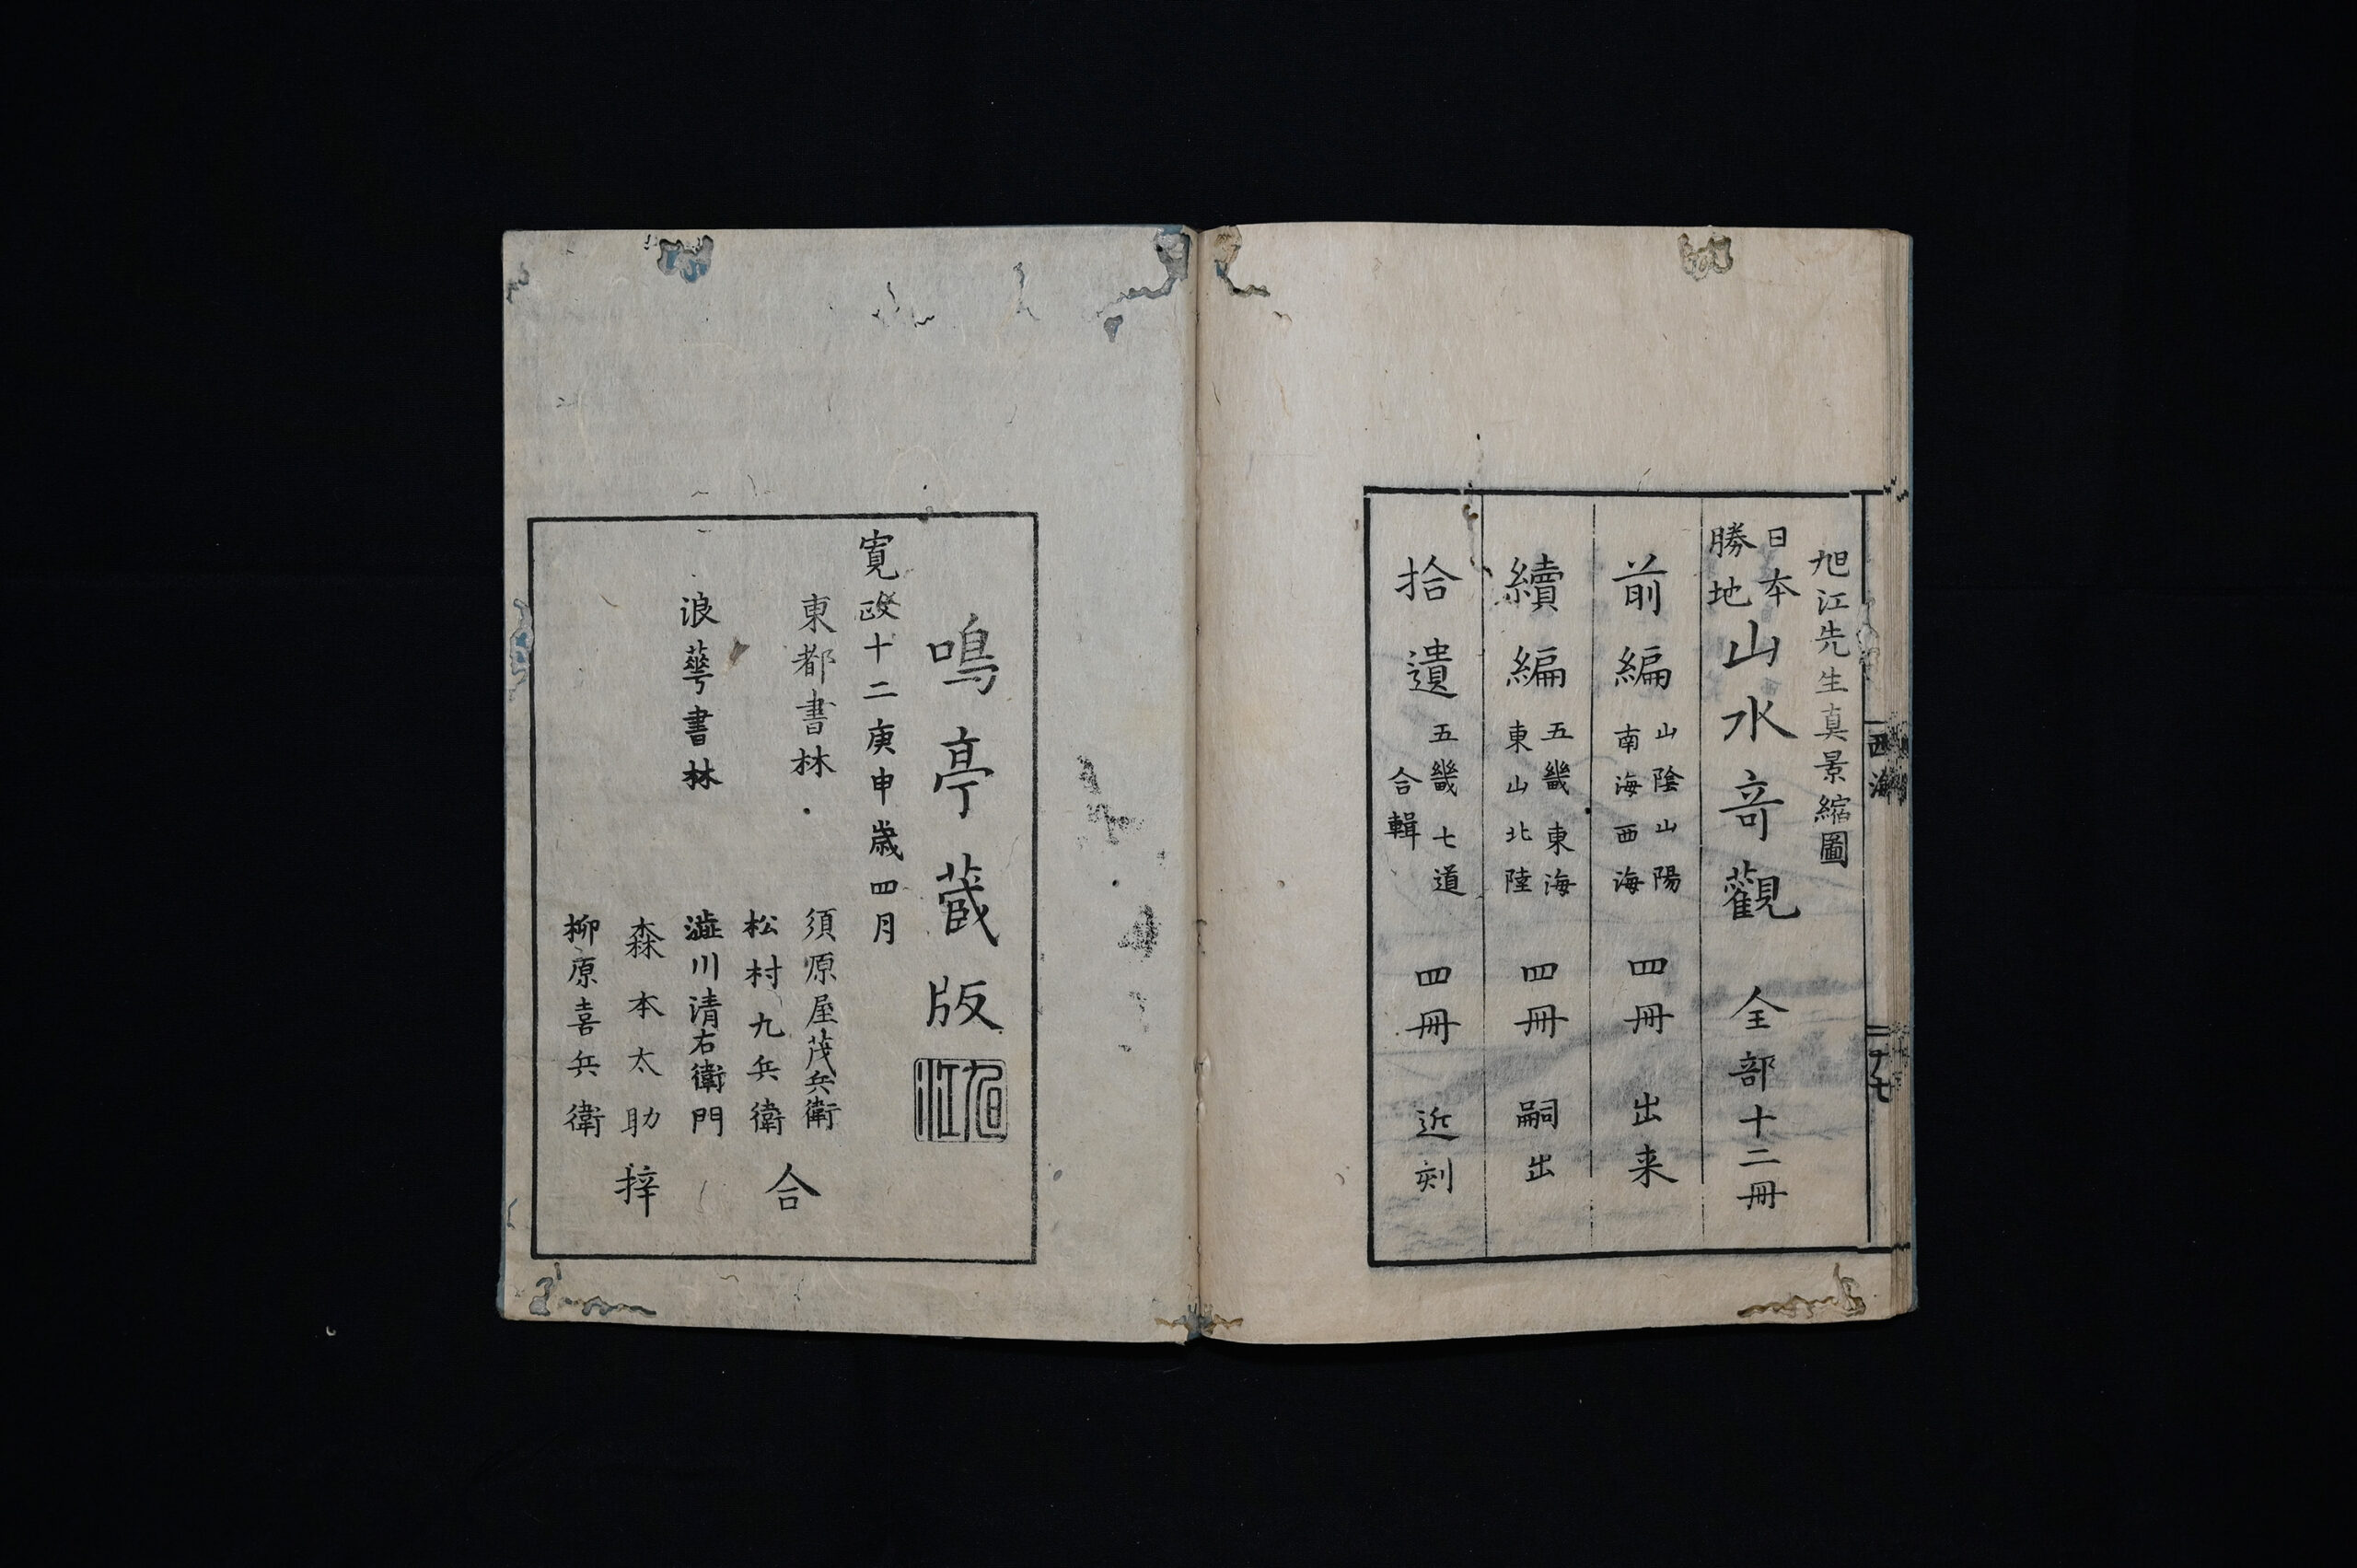 旭江先生真景縮圖
日本
勝地
山水奇觀 全部十二冊
前編 山陰山陽
南海西海 四冊 出来
續編 五畿東海
東山北陸 四冊 嗣出
拾遺 五畿七道
合輯 四冊 近刻
西海
二十七
鳴亭蔵版
旭江
寛政十二庚申歳四月
東都書林 須原屋茂兵衛
松村九兵衛
浪華書林 澁川清右衛門
森本太助
柳原喜兵衛
合梓